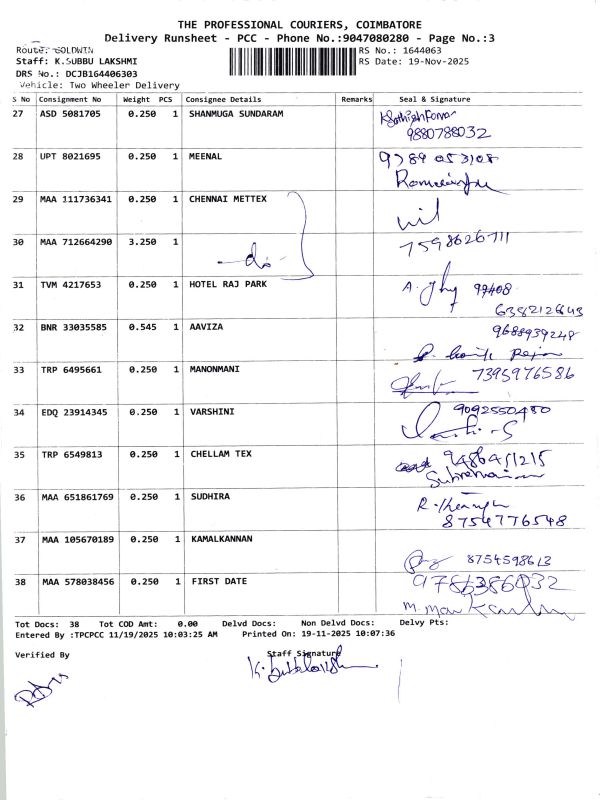 THE PROFESSIONAL COURIERS, COIMBATORE
Delivery Runsheet - PCC - Phone No.:9047080280 - Page No.:3
Route: GOLDWIN
Staff: K.SUBBU LAKSHMI
DRS No.: DCJB164406303
Vehicle: Two Wheeler Delivery
RS No.: 1644063
RS Date: 19-Nov-2025
S No Consignment No Weight PCS Consignee Details Remarks Seal & Signature
27 ASD 5081705 0.250 1 SHANMUGA SUNDARAM
9880788032
28 UPT 8021695 0.250 1 MEENAL
29 MAA 111736341 0.250 1 CHENNAI METTEX
nil
30 MAA 712664290 3.250 1 -do-
31 TVM 4217653 0.250 1 HOTEL RAJ PARK
32 BNR 33035585 0.545 1 AAVIZA
9688939248
33 TRP 6495661 0.250 1 MANONMANI
7395976586
34 EDQ 23914345 0.250 1 VARSHINI
9092550480
35 TRP 6549813 0.250 1 CHELLAM TEX
9486451215
36 MAA 651861769 0.250 1 SUDHIRA
8754776548
37 MAA 105670189 0.250 1 KAMALKANNAN
8754598613
38 MAA 578038456 0.250 1 FIRST DATE
9786386032
Tot Docs: 38 Tot COD Amt: 0.00 Delvd Docs: Non Delvd Docs: Delvy Pts:
Entered By :TPCPCC 11/19/2025 10:03:25 AM Printed On: 19-11-2025 10:07:36
Verified By Staff Signature